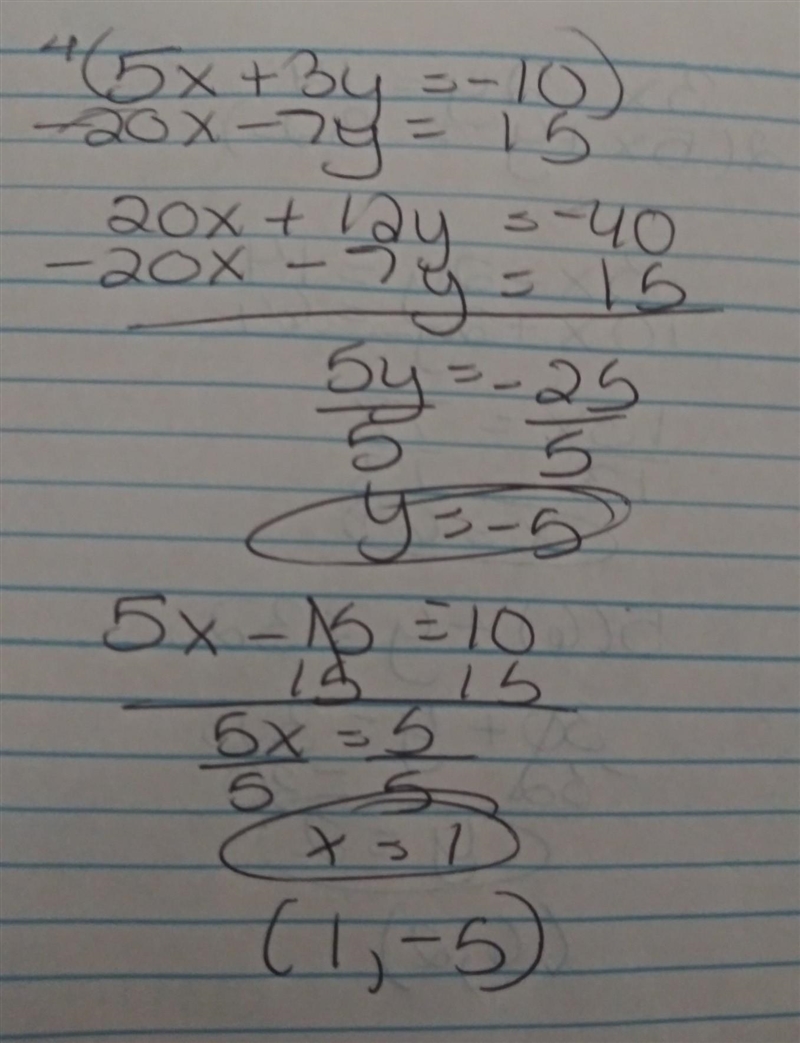 4(5x+3y=-10)
-20x-7y= 15
20x+12y=-40
-20x-7y= 15
5y=-25
5 5
y=-5
5x-15=10
15 15
5x=5
5 5
x=1
(1,-5)